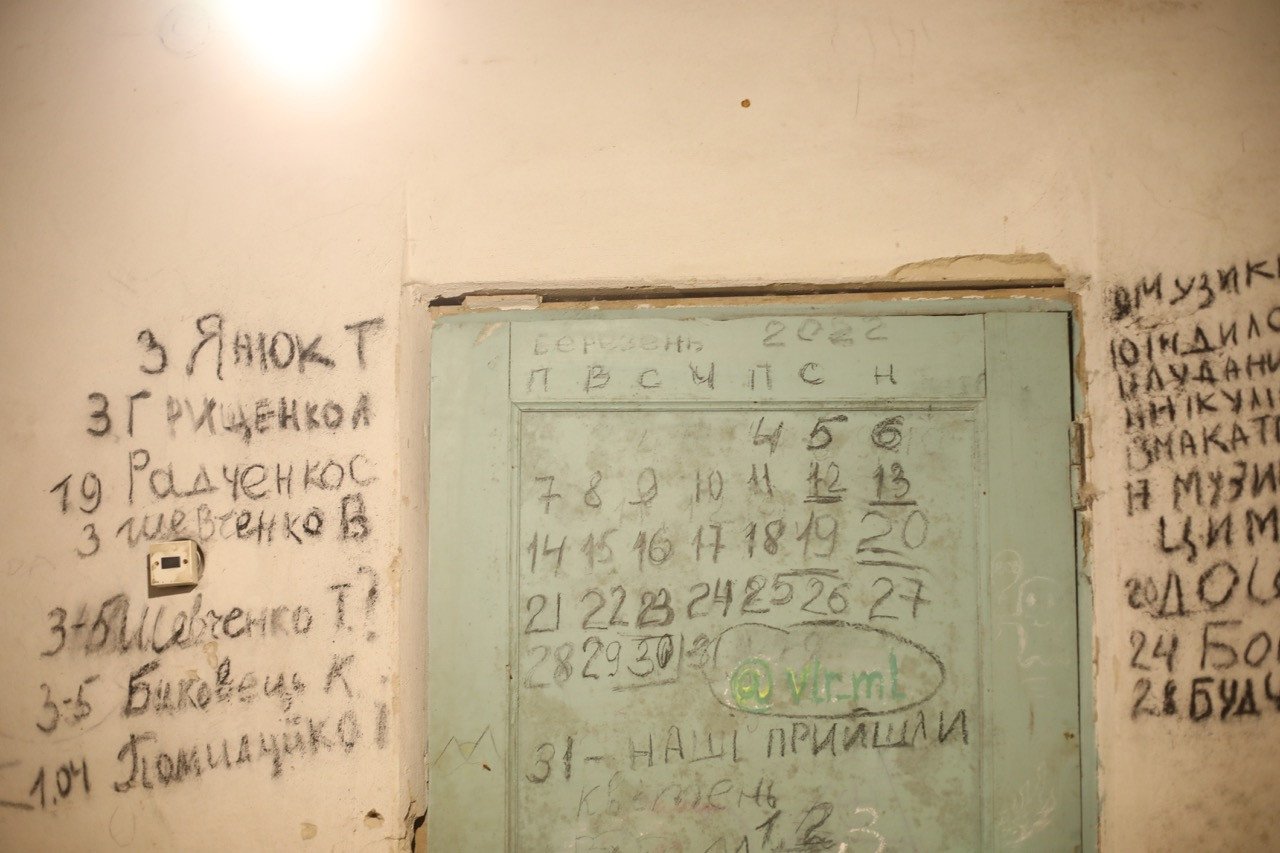 3 Янюк Т
3 Грищенко Л
19 Радченко С
3 Шевченко В
3-5 Шевченко Т?
3-5 Биковець К
1.04 Помилуйко І
Березень 2022
П В С Ч П С Н
4 5 6
7 8 9 10 11 12 13
14 15 16 17 18 19 20
21 22 23 24 25 26 27
28 29 30 31
@vlr_ml
31 - НАШІ ПРИЙШЛИ
квітень
1 2 3
МУЗИК
ЛУДАН
МАКАТ
17 МУЗИ
ЦИМ
24 БО
28 БУДЧ